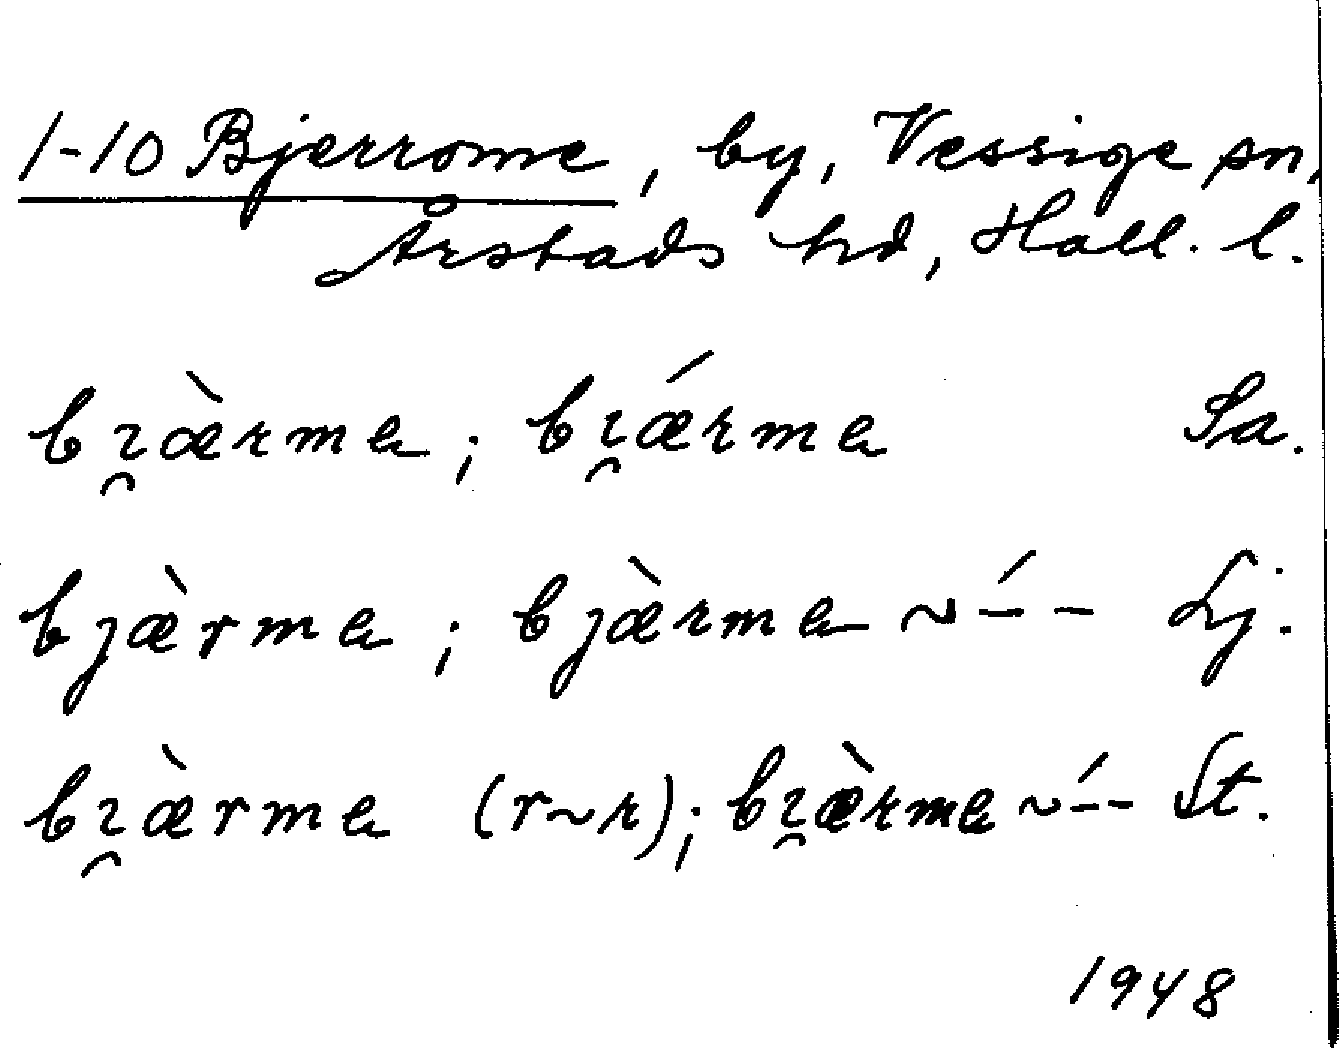 1-10 Bjerrome, by, Vessige sn,
Årstads hd, Hall. l.
bı̯æ̀rme; bı̯ǽrme Sa.
bjæ̀rme; bjæ̀rme ~ ´– – Lj.
bı̯æ̀rme (r~ɹ); bı̯æ̀rme ~ ´– – St.
1948